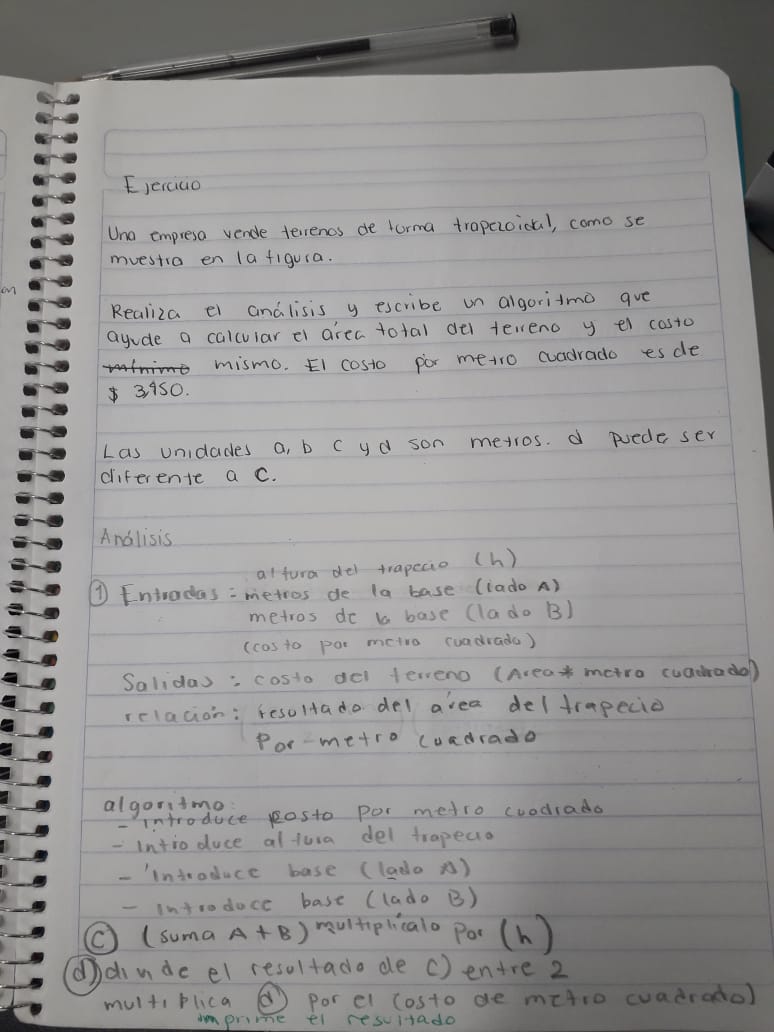 Ejercicio
Una empresa vende terrenos de forma trapezoidal, como se
muestra en la figura.
Realiza el análisis y escribe un algoritmo que
ayude a calcular el área total del terreno y el costo
mínimo mismo. El costo por metro cuadrado es de
$ 3,950.
Las unidades a, b c y d son metros. d puede ser
diferente a c.
Análisis
altura del trapecio (h)
① Entradas: metros de la base (lado A)
metros de la base (lado B)
(costo por metro cuadrado)
Salidas: costo del terreno (Area * metro cuadrado)
relación: resultado del área del trapecio
Por metro cuadrado
algoritmo:
- introduce costo por metro cuadrado
- Introduce altura del trapecio
- Introduce base (lado A)
- Introduce base (lado B)
ⓒ (suma A+B) multiplícalo por (h)
ⓓ) divide el resultado de c) entre 2
multiplica ⓓ por el costo de metro cuadrado)
imprime el resultado